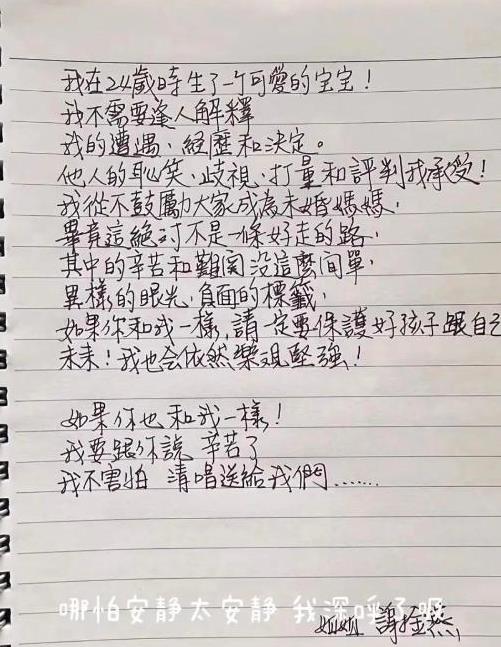 我在24歲時生了一个可愛的宝宝!
我不需要逢人解釋
我的遭遇、經歷和決定。
他人的恥笑、歧視、打量和評判我承受!
我從不鼓勵大家成為未婚媽媽,
畢竟這絕对不是一條好走的路,
其中的辛苦和難関没這麼间單,
異樣的眼光、負面的標籤,
如果你和我一樣,請一定要保護好孩子跟自己
未來!我也会依然樂观堅強!
如果你也和我一樣!
我要跟你說 辛苦了
我不害怕 清唱送給我們......
哪怕安静太安静 我深呼了
姐姐 謝金燕